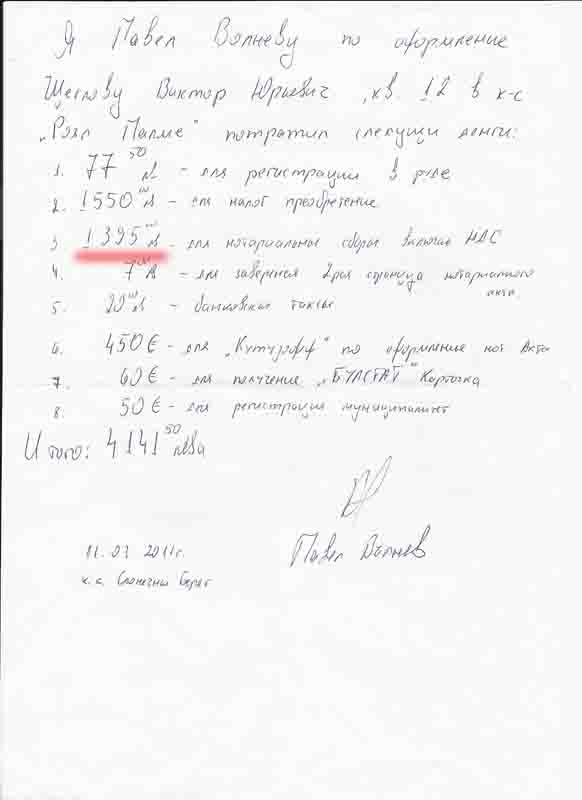 Я Павел Вълневу по оформление
Щеглову Виктор Юрьевич, кв. 12 в к-с
„Роял Палме" потратил следущи денги:
1. 77 50 л - для регистрации в
2. 1550 00 л - для налог преобретение
3 1395 00 л - для нотариальные сборы включая НДС
4. 7 00 л - для заверения 2рая страница нотариатного
акта
5. 20 00 л - банковские таксы
6. 450 € - для „Кутузофф" по оформление нот Акта
7. 60 € - для получение „БУЛСТАТ" Карточка
8. 50 € - для регистрация муниципалитет
Итого: 4141 50 лева
Павел Вълнев
11.07 2011г.
к.с. Слонечны Берег